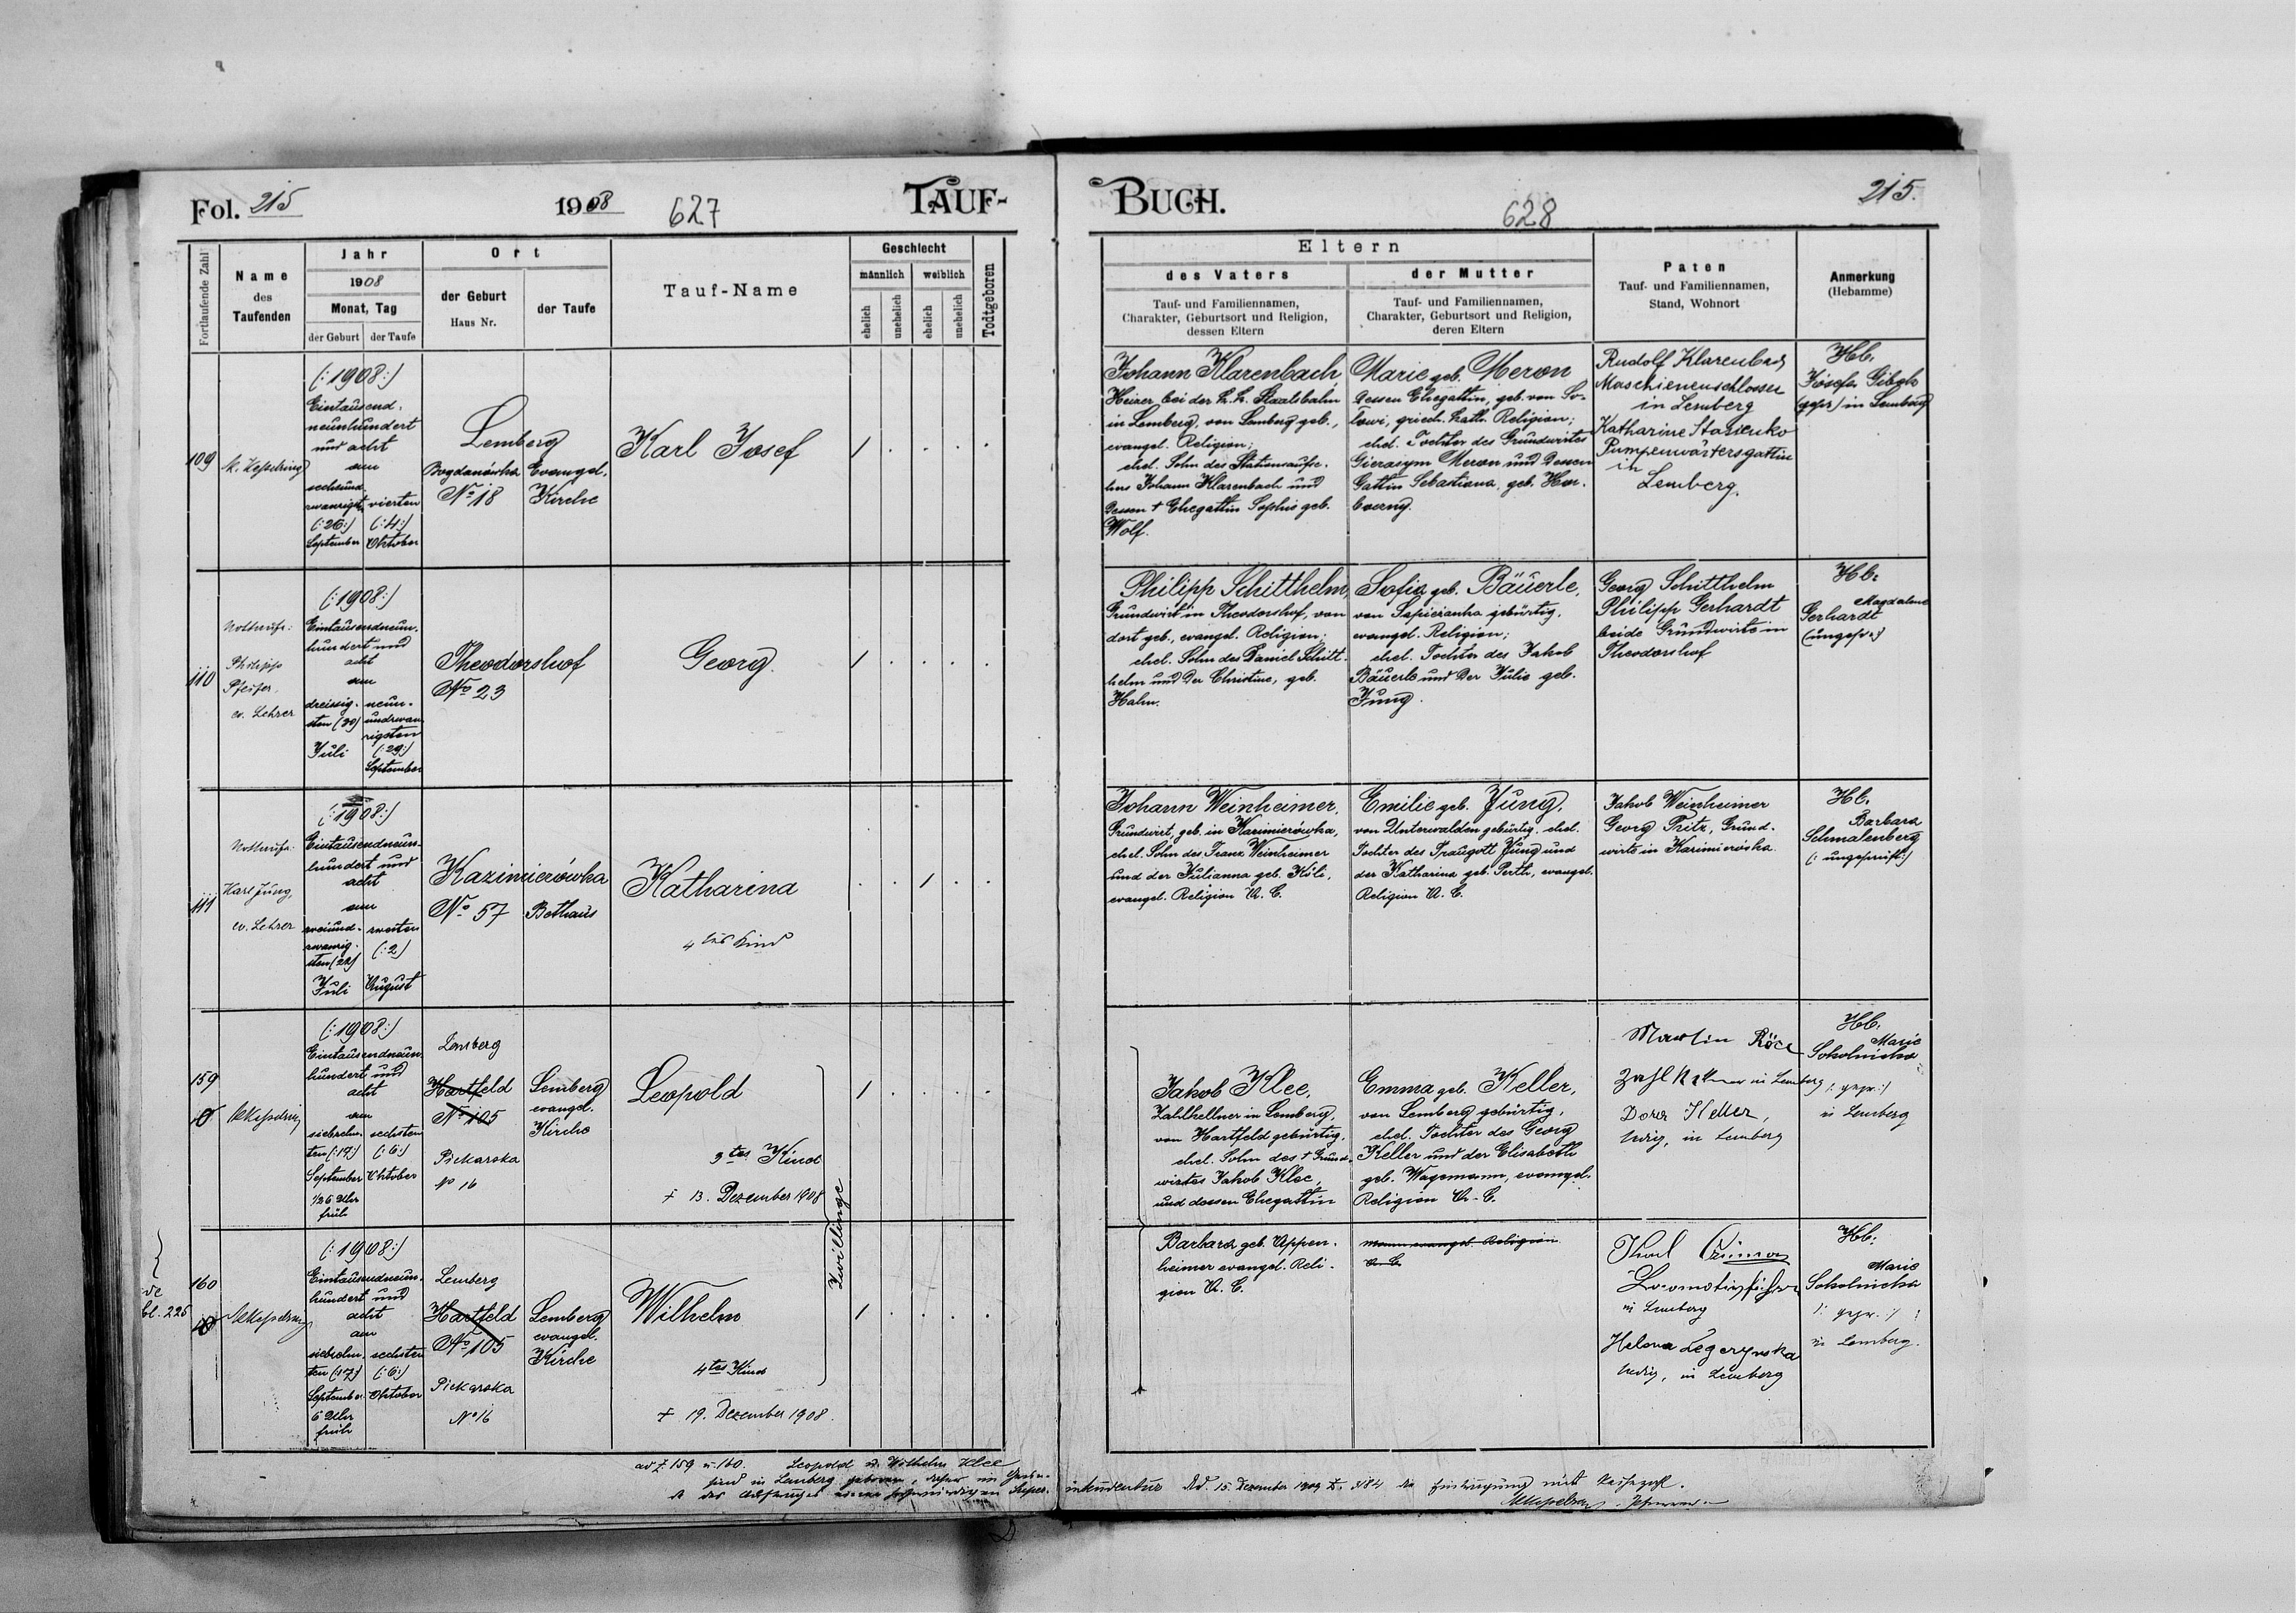 Fol. 215
1908
627
TAUF-
BUCH.
628
215.
Fortlaufende Zahl
Name
des
Taufenden
Jahr
1908
Monat, Tag
der Geburt
der Taufe
Ort
der Geburt
Haus Nr.
der Taufe
Tauf-Name
Geschlecht
männlich
weiblich
ehelich
unehelich
ehelich
unehelich
Todtgeboren
Eltern
des Vaters
Tauf- und Familiennamen,
Charakter, Geburtsort und Religion,
dessen Eltern
der Mutter
Tauf- und Familiennamen,
Charakter, Geburtsort und Religion,
deren Eltern
Paten
Tauf- und Familiennamen,
Stand, Wohnort
Anmerkung
(Hebamme)
109
(:1908:)
Eintausend-
neunhundert
und acht
am
sechsund-
zwanzigst.
(:26:)
September
vierten
(:4:)
Oktober
Lemberg
Bogdanówka
No 18
Evangel.
Kirche
Karl Josef
1
Johann Klarenbach
Heizer bei der k.k. Staatsbahn
in Lemberg, von Lemberg geb.,
evangel. Religion;
ehel. Sohn des Stationsaufse-
hers Johann Klarenbach und
dessen † Ehegattin Sophie geb.
Wolf.
Marie geb. Meron
dessen Ehegattin, geb. von So-
griech. kath. Religion;
ehel. Tochter des Grundwirtes
Gierasym Meron und dessen
Gattin Sebastiana, geb. Hor-
Rudolf Klarenbach
Maschienenschlosser
in Lemberg
Katharine Stasienko
Pumpenwärtersgattin
in
Lemberg.
Hb.
Josefa
(gepr) in Lemberg
110
Philipp
Pfeifer,
ev. Lehrer
(:1908:)
Eintausendneun-
hundert und
acht
am
dreissig-
sten (30)
Juli
neun-
undzwan-
zigsten
(:29:)
September
Theodorshof
No 23
Georg.
1
Philipp Schitthelm,
Grundwirt in Theodorshof, von
dort geb., evangel. Religion;
ehel. Sohn des Daniel Schitt-
helm und der Christine, geb.
Hahn.
Sofia geb. Bäuerle,
von Sapieżanka gebürtig,
evangel. Religion;
ehel. Tochter des Jakob
Bäuerle und der Julie geb.
Jung.
Georg Schitthelm
Philipp Gerhardt
beide Grundwirte in
Theodorshof
Hb.
Magdalene
Gerhardt
(ungepr.)
111
Karl Jung,
ev. Lehrer
(:1908:)
Eintausendneun-
hundert und
acht
am
zweiund-
zwanzig-
sten (22)
Juli
zweiten
(:2)
August
Kazimierówka
No 57
Bethaus
Katharina
4tes Kind
1
Johann Weinheimer,
Grundwirt, geb. in Kazimierówka,
ehel. Sohn des Franz Weinheimer
und der Julianna geb. Köli,
evangel. Religion A. C.
Emilie geb. Jung,
von Unterwalden gebürtig, ehel.
Tochter des Traugott Jung und
der Katharina geb. Perth, evangel.
Religion A. C.
Jakob Weinheimer
Georg Fritz, Grund-
wirte in Kazimierówka.
Hb.
Barbara
Schmalenberg
(: ungeprüft:)
159
(:1908:)
Eintausendneun-
hundert und
acht
am
siebzehn-
ten (:17:)
September
1/2 6 Uhr
früh
sechsten
(:6:)
Oktober
Lemberg
Hartfeld
No 105
Piekarska
No 16
Lemberg
evangel.
Kirche
Leopold
3tes Kind
† 13. Dezember 1908
Zwillinge
1
Jakob Klee,
Zahlkellner in Lemberg,
von Hartfeld gebürtig,
ehel. Sohn des † Grund-
wirtes Jakob Klee,
und dessen Ehegattin
Emma geb. Keller,
von Lemberg gebürtig,
ehel. Tochter des Georg
Keller und der Elisabeth
geb. Wagemann, evangel.
Religion A. C.
Martin
Zahlkellner in Lemberg
Dora Keller,
ledig, in Lemberg
Hb.
Marie
Sokolnicka
(: gepr:)
in Lemberg
bl. 226
160
(:1908:)
Eintausendneun-
hundert und
acht
am
siebzehn-
ten (:17:)
September
6 Uhr
früh
sechsten
(:6:)
Oktober
Lemberg
Hartfeld
No 105
Piekarska
No 16
Lemberg
evangel.
Kirche
Wilhelm
4tes Kind
† 19. Dezember 1908.
1
Barbara geb. Appen-
heimer evangel. Reli-
gion A. C.
evangel. Religion
A. C.
Karl
Locomotivführer
in Lemberg
Helena
ledig, in Lemberg
Hb.
Marie
Sokolnicka
(: gepr. :)
in Lemberg.
ad Z 159 u. 160. Leopold u. Wilhelm Klee
sind in Lemberg geboren,
15. Dezember 1909